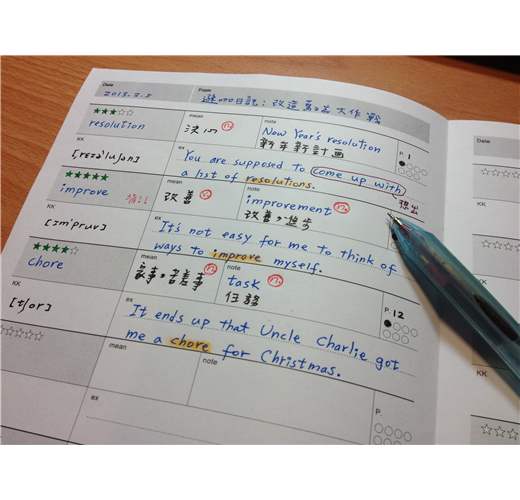 Date From
遜咖日記：改造 大作戰
★★★☆☆ mean note P. 1
resolution 決心 n. New Year's resolution
新年新計畫
KK ex
[,rɛzə'luʃən] You are supposed to come up with
a list of resolutions. 想出
★★★★★ mean note P.
improve 改善 v. improvement n.
改善、進步
KK ex
[ɪm'pruv] It's not easy for me to think of
ways to improve myself.
★★★★☆ mean note P. 12
chore 家事、苦差事 n. task n.
任務
KK ex
[tʃor] It ends up that Uncle Charlie got
me a chore for Christmas.
☆☆☆☆☆ mean note P.
KK ex
Date
☆☆☆☆
KK
KK
KK
☆☆☆☆
KK